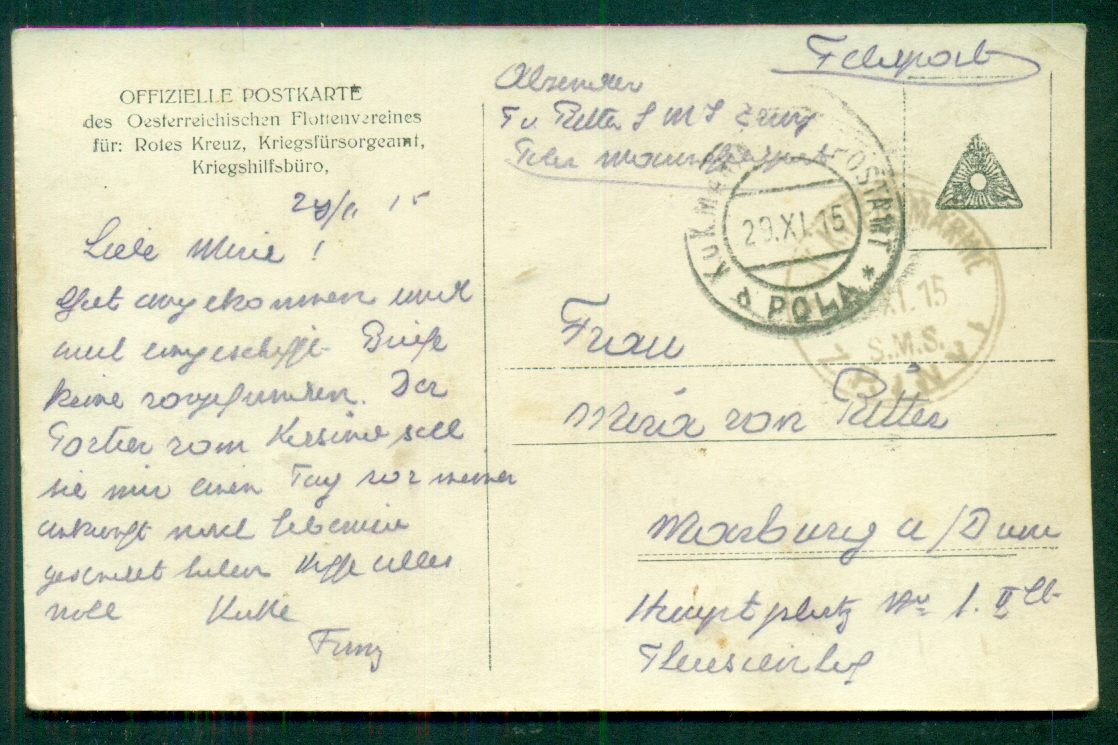 OFFIZIELLE POSTKARTE
des Oesterreichischen Flottenvereines
für: Rotes Kreuz, Kriegsfürsorgeamt,
Kriegshilfsbüro,
Feldpost
Absender
F v. Ritter S M S Zriny
K.u.K. MARINE POSTAMT
29.XI.15
POLA
MARINE
XI. 15
S.M.S.
ZRINYI
15
Liebe Mizie!
Gut angekommen und
eingeschifft. Briefe
keine vorgefunden. Der
Portier vom Kasino soll
sie mir einen Tag vor meiner
Ankunft nach
gesendet haben Küsse alles
Franz
Frau
Maria von Ritter
Marburg a/Drau
Hauptplatz Nr 1. II
Theresienhof